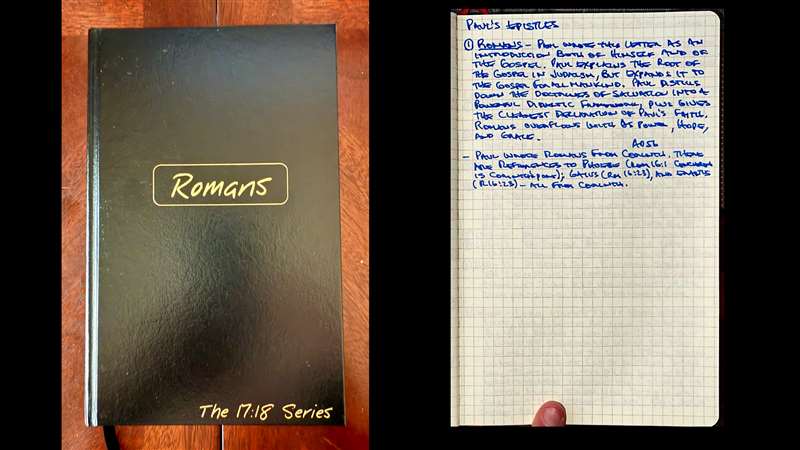 Romans
The 17:18 Series
PAUL'S EPISTLES
① ROMANS - PAUL WROTE THIS LETTER AS AN
INTRODUCTION BOTH OF HIMSELF AND OF
THE GOSPEL. PAUL EXPLAINS THE ROOT OF
THE GOSPEL IN JUDAISM, BUT EXPANDS IT TO
THE GOSPEL FOR ALL MANKIND. PAUL DISTILLS
DOWN THE DOCTRINES OF SALVATION INTO A
POWERFUL DIDACTIC FRAMEWORK, PLUS GIVES
THE CLEAREST DECLARATION OF PAUL'S FAITH.
ROMANS OVERFLOWS WITH POWER, HOPE,
AND GRACE.
AD56
- PAUL WROTE ROMANS FROM CORINTH. THERE
ARE REFERENCES TO PHOEBE (ROM 16:1
IS CORINTH PORT); GAIUS (RM 16:23), AND ERASTUS
(R16:23) - ALL FROM CORINTH.